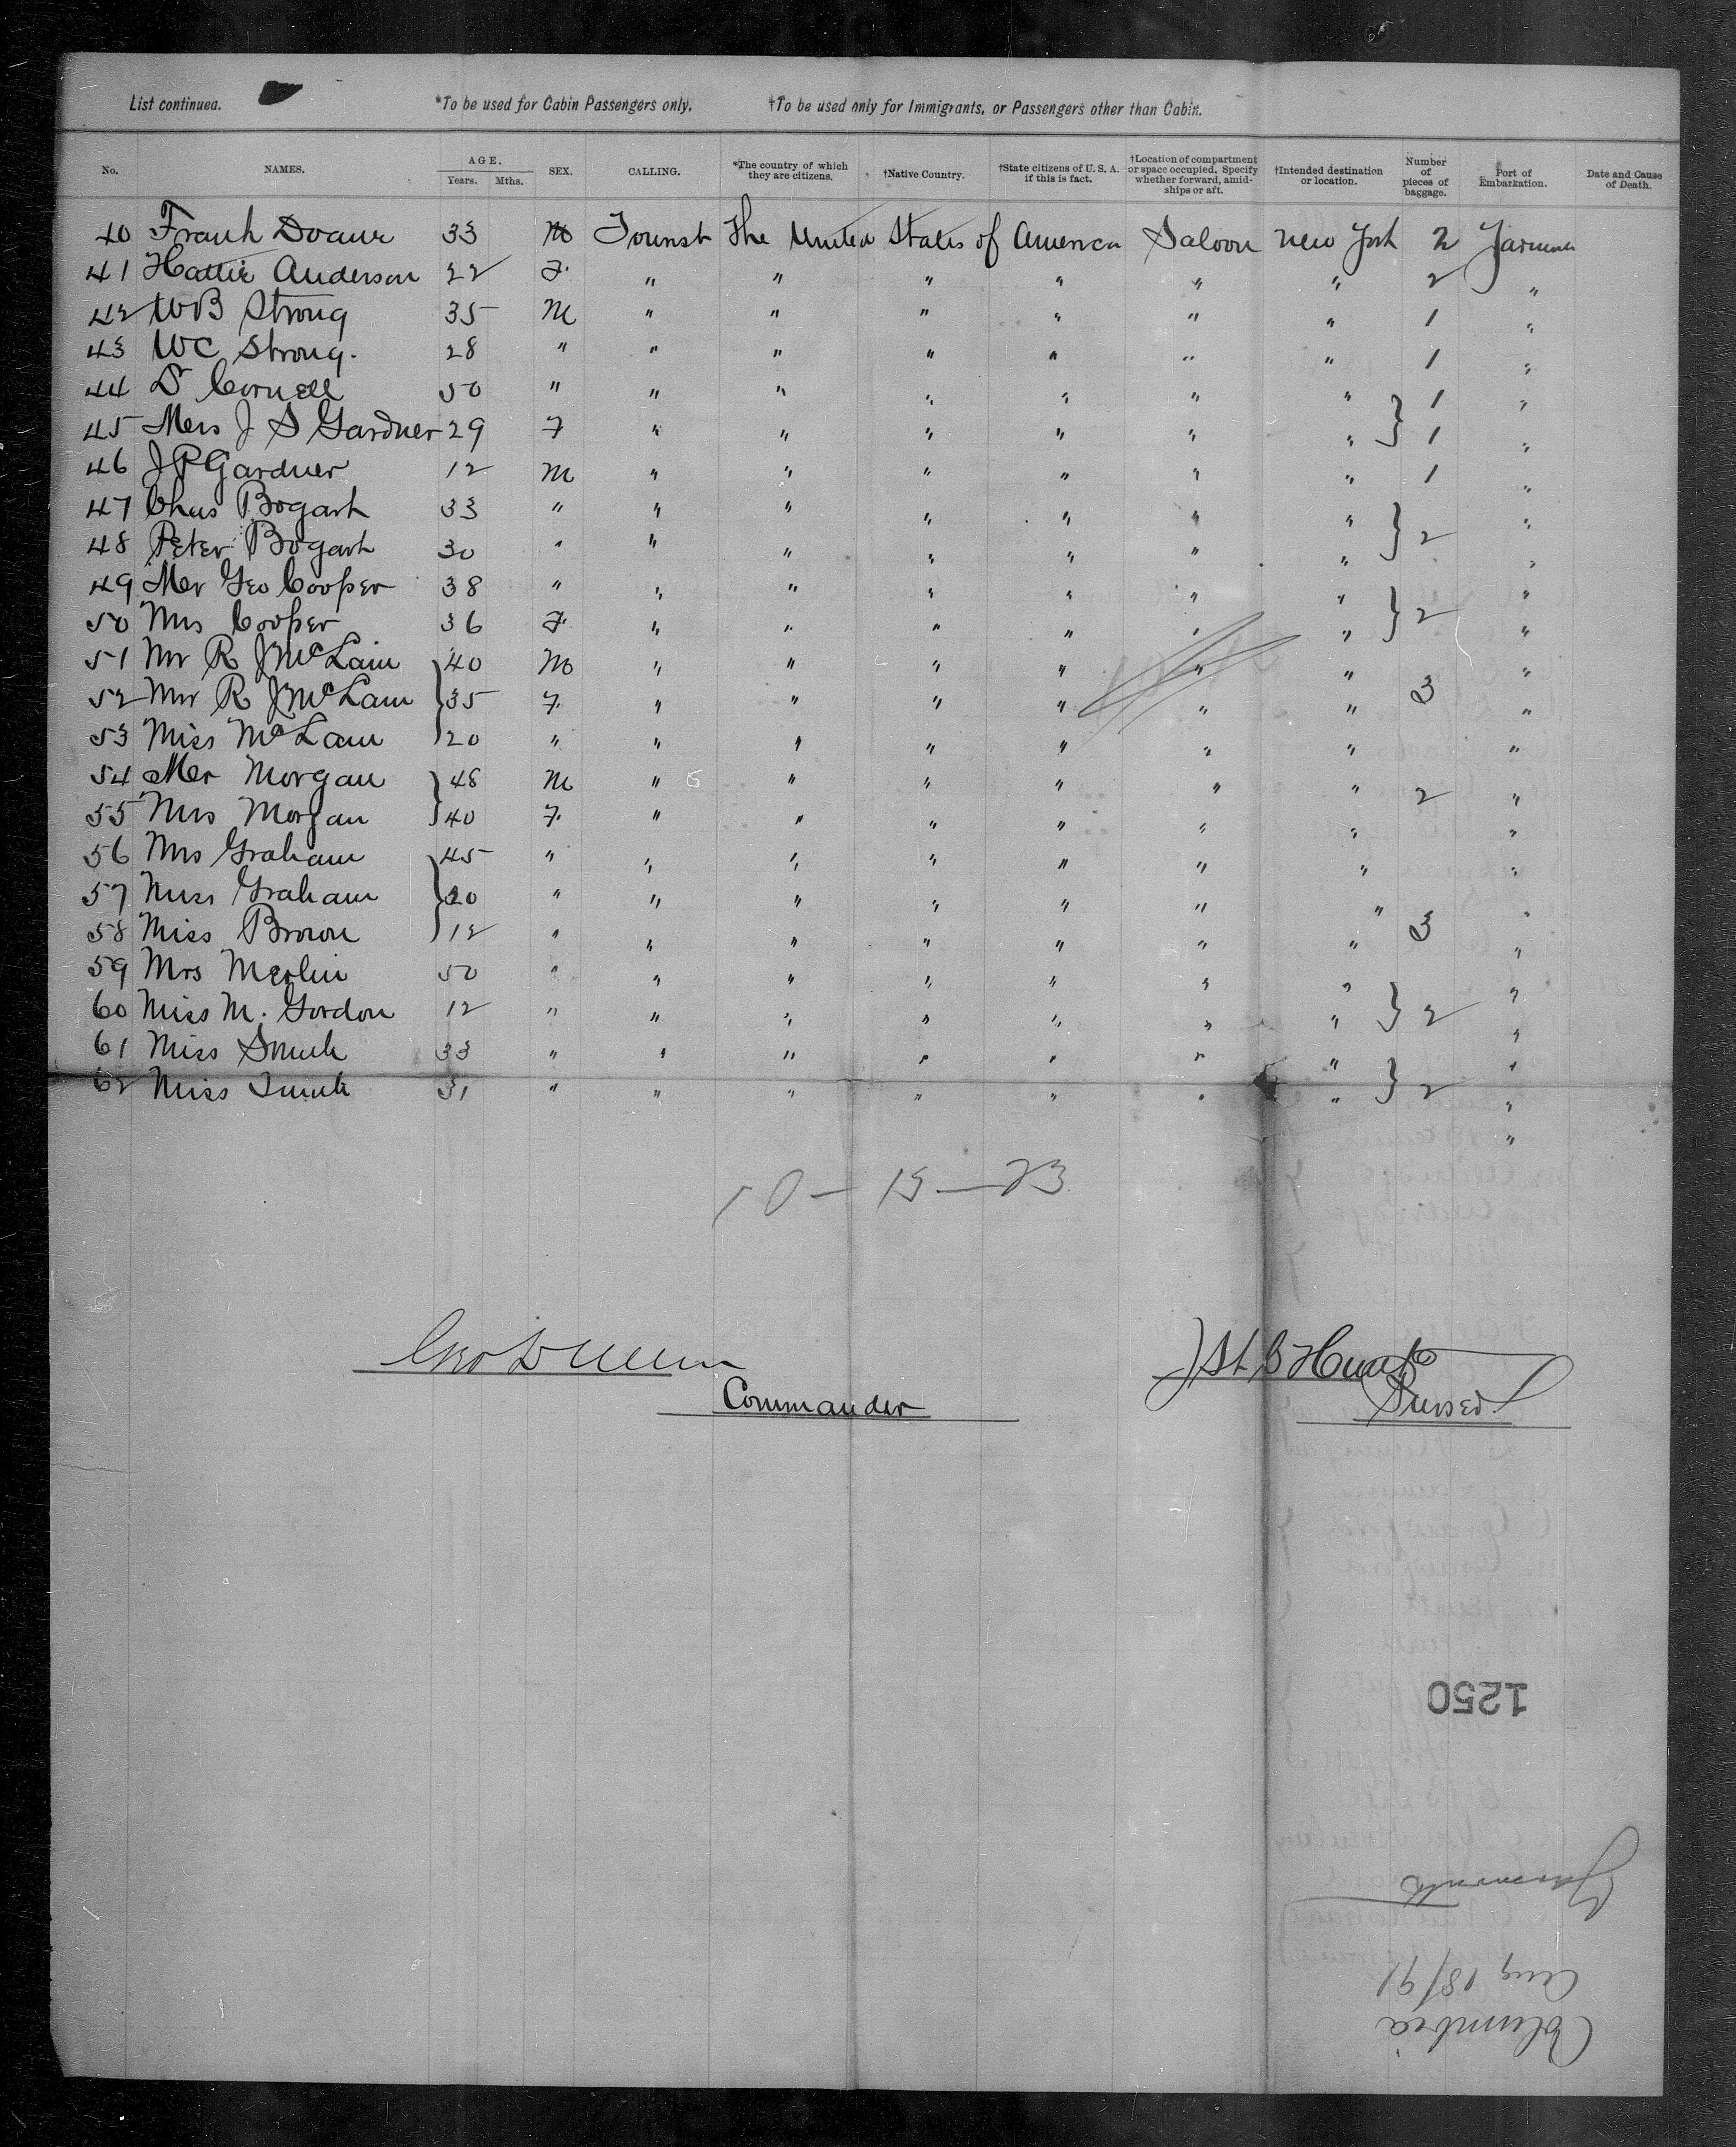 List continued. *To be used for Cabin Passengers only. †To be used only for Immigrants, or Passengers other than Cabin.
No. NAMES. AGE. Years. Mths. SEX. CALLING. *The country of which they are citizens. †Native Country. †State citizens of U.S.A. if this is fact. †Location of compartment or space occupied. Specify whether forward, amidships or aft. †Intended destination or location. Number of pieces of baggage. Port of Embarkation. Date and Cause of Death.
40 Frank Doane 33 M Tourist The United States of America Saloon New York 2
41 Hattie Anderson 22 F. " " " " " " 2 "
42 WB Strong 35 M " " " " " " 1 "
43 WC Strong. 28 " " " " " " " 1 "
44 D Cornell 50 " " " " " " " 1 "
45 Mrs J S Gardner 29 F " " " " " " 1 "
46 JP Gardner 12 M " " " " " " 1 "
47 Chas Bogart 33 " " " " " " " "
48 Peter Bogart 30 " " " " " " " 2 "
49 Mr Geo Cooper 38 " " " " " " " "
50 Mrs Cooper 36 F. " " " " " " 2 "
51 Mr R J McLain 40 M " " " " " " "
52 Mrs R J McLain 35 F. " " " " " " 3 "
53 Miss McLain 20 " " " " " " " "
54 Mr Morgan 48 M " " " " " " 2 "
55 Mrs Morgan 40 F. " " " " " " "
56 Mrs Graham 45 " " " " " " " "
57 Miss Graham 20 " " " " " " " "
58 Miss Brown 12 " " " " " " " 3 "
59 Mrs Merlin 50 " " " " " " " "
60 Miss M. Gordon 12 " " " " " " " 2 "
61 Miss Smith 33 " " " " " " " "
62 Miss 31 " " " " " " " 2 "
"
10 — 15 — 23
Geo
Commander
J St B Hunt
Purser
1250
Yarmouth
Aug 18/91
Columbia